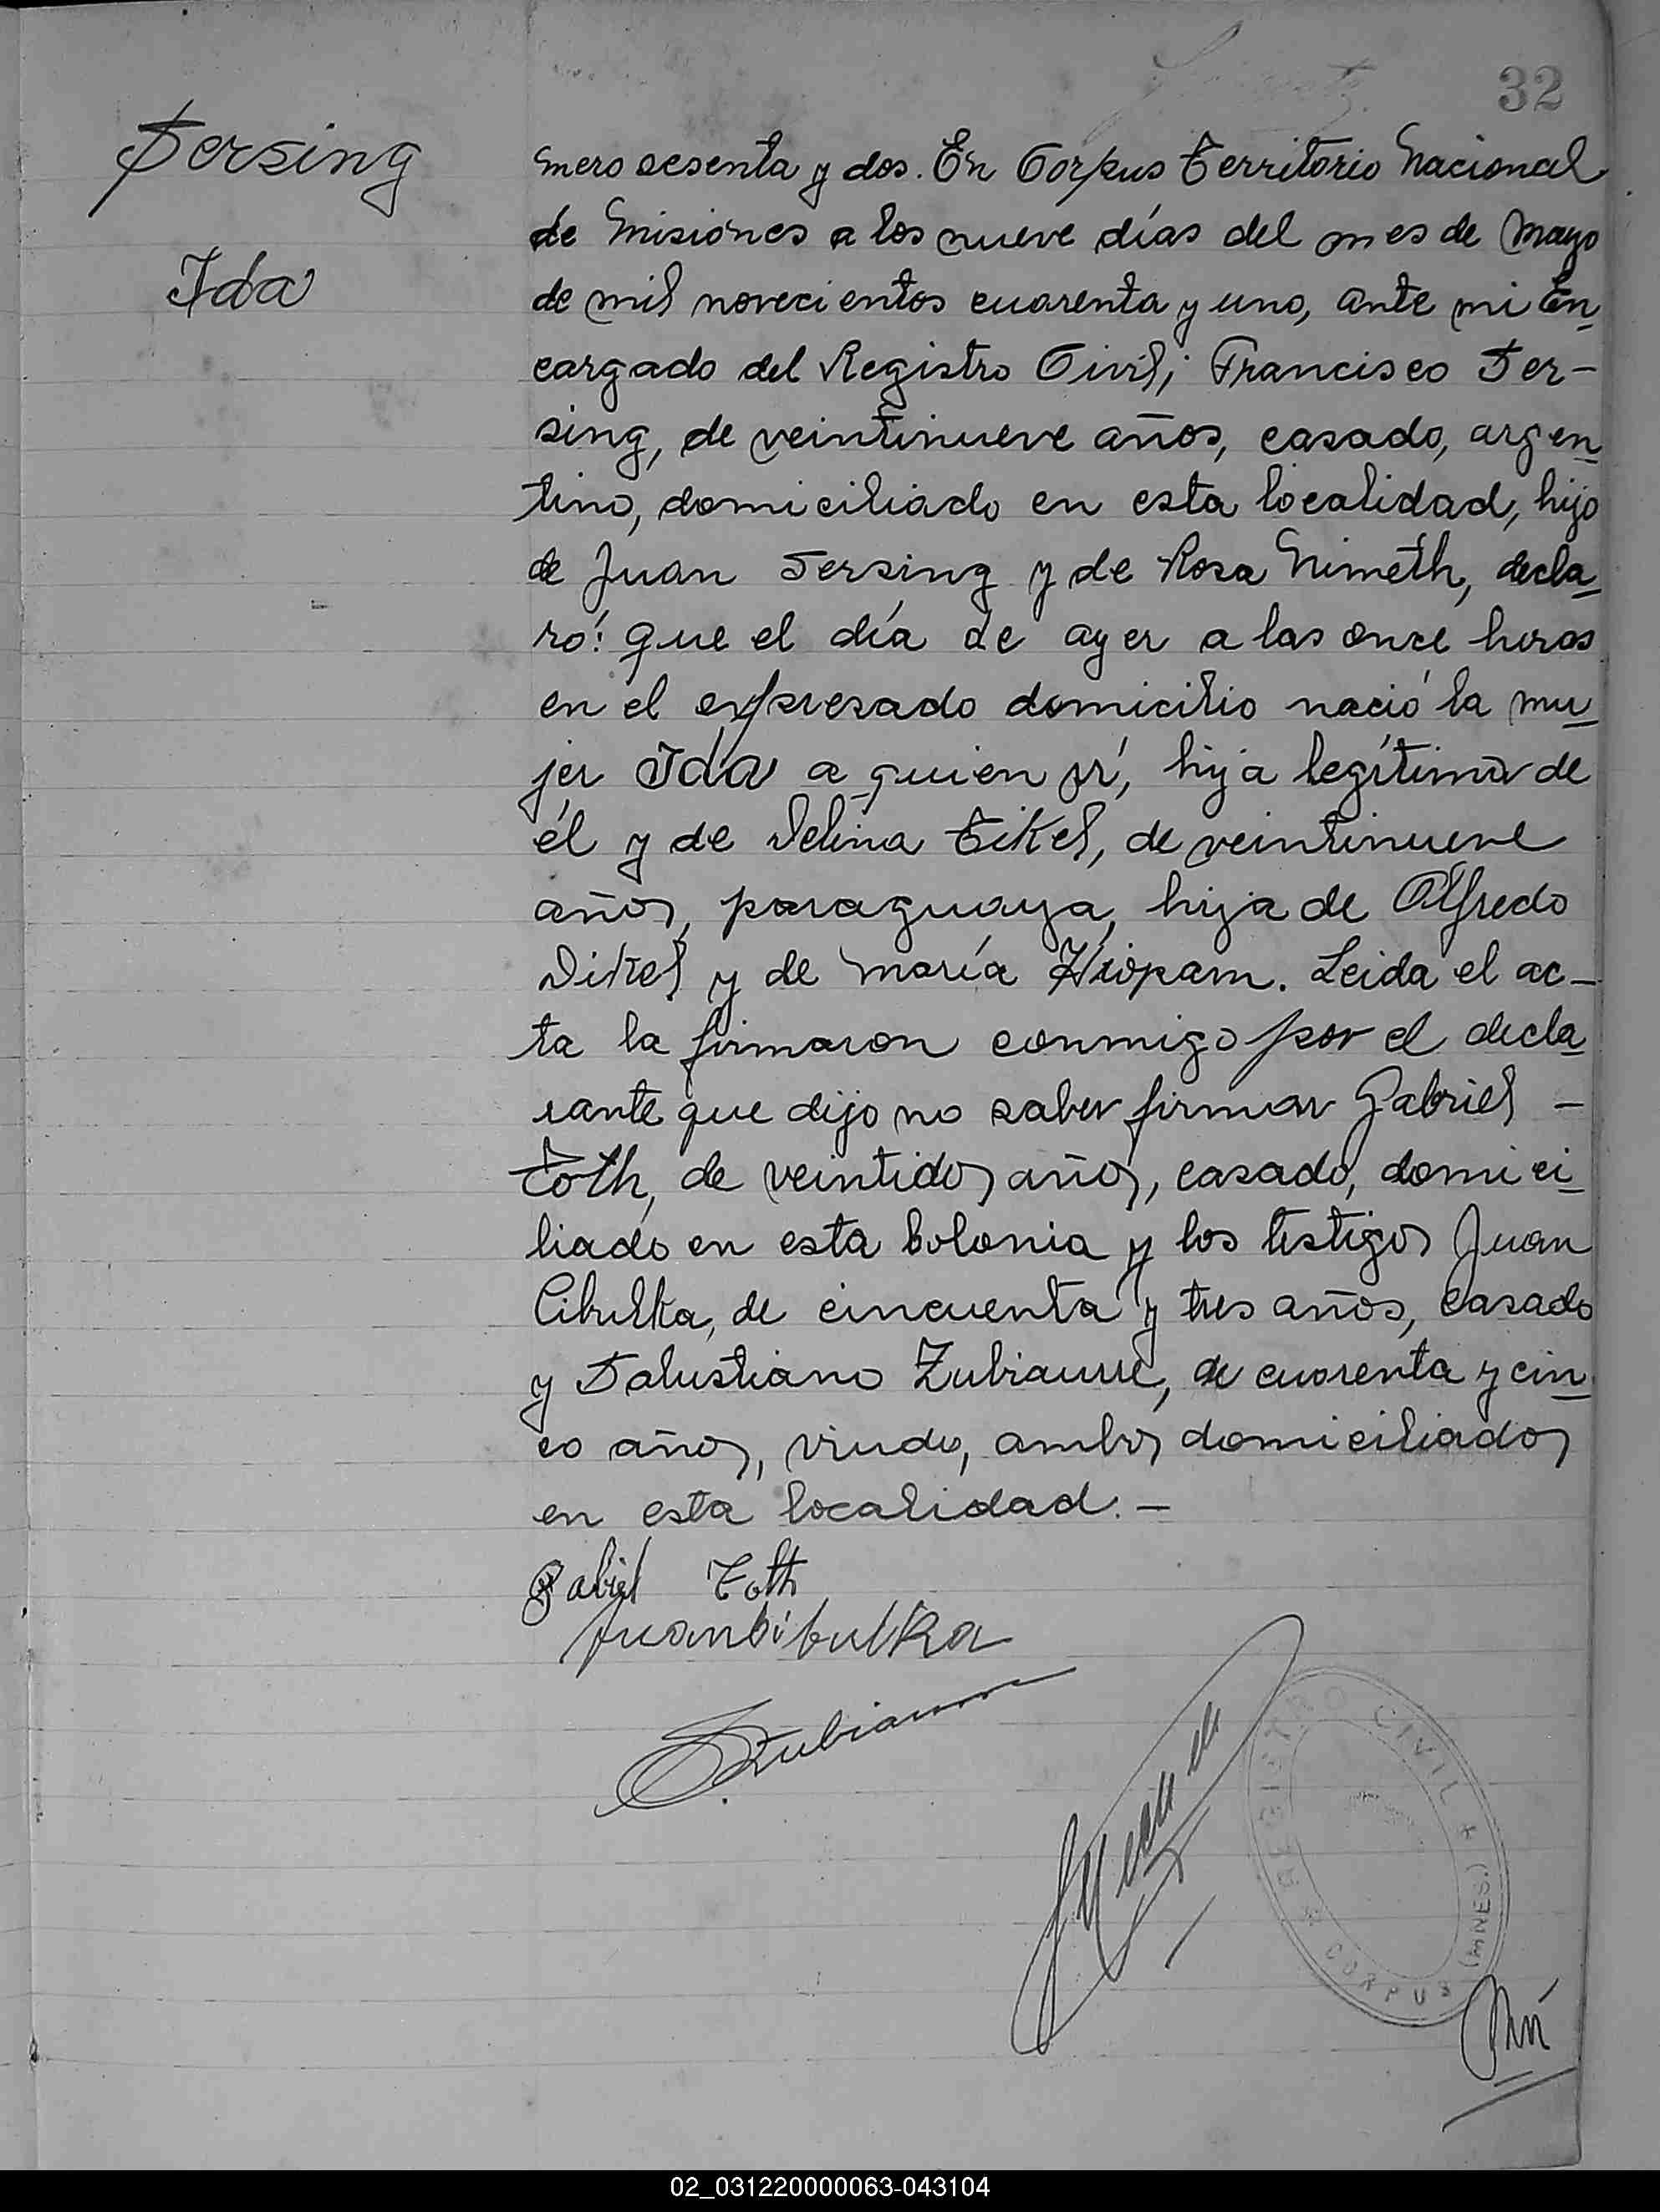 32
Sersing
Ida
mero sesenta y dos. En Corpus Territorio Nacional
de Misiones a los nueve días del mes de Mayo
de mil novecientos cuarenta y uno, ante mi En
cargado del Registro Civil; Francisco Ser-
sing, de veintinueve años, casado, argen
tino, domiciliado en esta localidad, hijo
de Juan Sersing y de Rosa Nimeth, decla
ró: que el día de ayer a las once horas
en el expresado domicilio nació la mu
jer Ida a quien ví, hija legítima de
él y de Delina Tikel, de veintinueve
años, paraguaya, hija de Alfredo
Dikel y de maría. Leida el ac-
ta la firmaron conmigo por el decla
rante que dijo no saber firmar Gabriel -
Toth, de veintidos años, casado, domici
liado en esta Colonia y los testigos Juan
Cibulka, de cincuenta y tres años, casado
y Salustiano Zubiaurre, de cuarenta y cin
co años, viudo, ambos domiciliados
en esta localidad. -
Gabriel Toth
Juan Cibulka
S. Zubiaurre
REGISTRO CIVIL
CORPUS (MNES.)
02_031220000063-043104